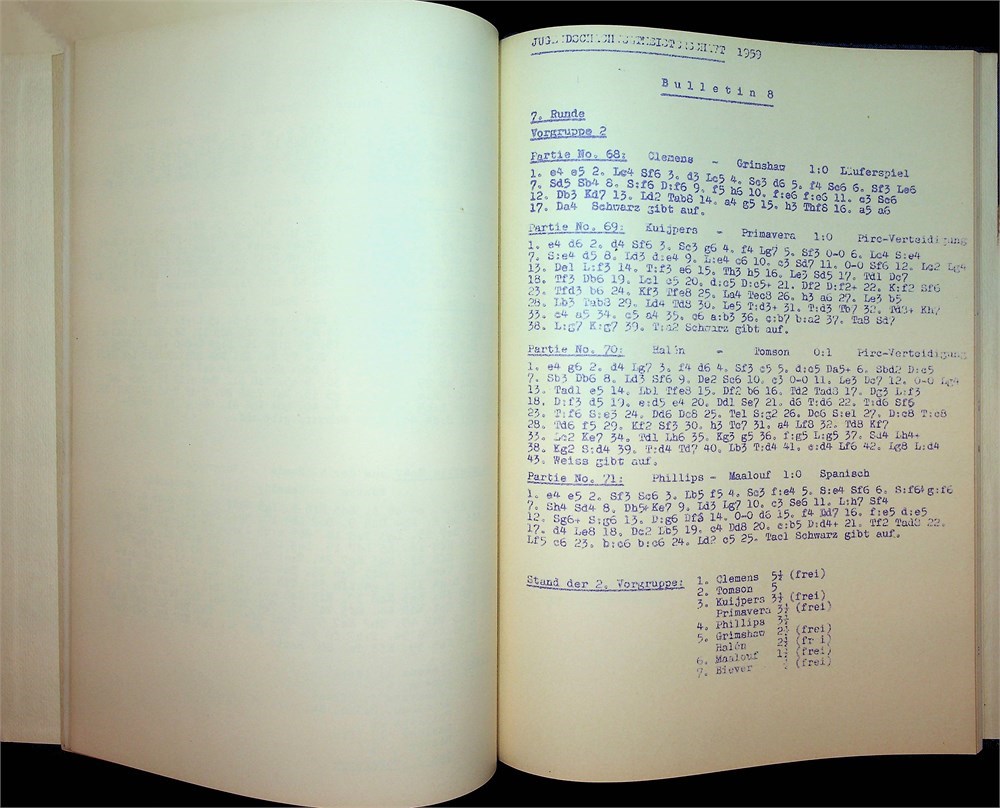 JUGENDSCHACHWELTMEISTERSCHAFT 1959
Bulletin 8
7. Runde
Vorgruppe 2
Partie No. 68: Clemens - Grinshaw 1:0 Läuferspiel
1. e4 e5 2. Lc4 Sf6 3. d3 Lc5 4. Sc3 d6 5. f4 Sc6 6. Sf3 Le6
7. Sd5 Sb4 8. S:f6 D:f6 9. f5 h6 10. f:e6 f:e6 11. c3 Sc6
12. Db3 Kd7 13. Ld2 Tab8 14. a4 g5 15. h3 Thf8 16. a5 a6
17. Da4 Schwarz gibt auf.
Partie No. 69: Kuijpers - Primavera 1:0 Pirc-Verteidigung
1. e4 d6 2. d4 Sf6 3. Sc3 g6 4. f4 Lg7 5. Sf3 0-0 6. Lc4 S:e4
7. S:e4 d5 8. Ld3 d:e4 9. L:e4 c6 10. c3 Sd7 11. 0-0 Sf6 12. Lc2 Lg4
13. De1 L:f3 14. T:f3 e6 15. Th3 h5 16. Le3 Sd5 17. Td1 Dc7
18. Tf3 Db6 19. Lc1 c5 20. d:c5 D:c5+ 21. Df2 D:f2+ 22. K:f2 Sf6
23. Tfd3 b6 24. Kf3 Tfe8 25. La4 Tec8 26. h3 a6 27. Le3 b5
28. Lb3 Tab8 29. Ld4 Td8 30. Le5 T:d3+ 31. T:d3 Tb7 32. Td8+ Kh7
33. c4 a5 34. c5 a4 35. c6 a:b3 36. c:b7 b:a2 37. Ta8 Sd7
38. L:g7 K:g7 39. T:a2 Schwarz gibt auf.
Partie No. 70: Halén - Tomson 0:1 Pirc-Verteidigung
1. e4 g6 2. d4 Lg7 3. f4 d6 4. Sf3 c5 5. d:c5 Da5+ 6. Sbd2 D:c5
7. Sb3 Db6 8. Ld3 Sf6 9. De2 Sc6 10. c3 0-0 11. Le3 Dc7 12. 0-0 Lg4
13. Tad1 e5 14. Lb1 Tfe8 15. Df2 b6 16. Td2 Tad8 17. Dg3 L:f3
18. D:f3 d5 19. e:d5 e4 20. Dd1 Se7 21. d6 T:d6 22. T:d6 Sf5
23. T:f6 S:e3 24. Dd6 Dc8 25. Te1 S:g2 26. Dc6 S:e1 27. D:c8 T:c8
28. Td6 f5 29. Kf2 Sf3 30. h3 Tc7 31. a4 Lf8 32. Td8 Kf7
33. Lc2 Ke7 34. Td1 Lh6 35. Kg3 g5 36. f:g5 L:g5 37. Sd4 Lh4+
38. Kg2 S:d4 39. T:d4 Td7 40. Lb3 T:d4 41. c:d4 Lf6 42. Lg8 L:d4
43. Weiss gibt auf.
Partie No. 71: Phillips - Maalouf 1:0 Spanisch
1. e4 e5 2. Sf3 Sc6 3. Lb5 f5 4. Sc3 f:e4 5. S:e4 Sf6 6. S:f6+ g:f6
7. Sh4 Sd4 8. Dh5+ Ke7 9. Ld3 Lg7 10. c3 Se6 11. L:h7 Sf4
12. Sg6+ S:g6 13. D:g6 Df8 14. 0-0 d6 15. f4 Ld7 16. f:e5 d:e5
17. d4 Le8 18. Dc2 Lb5 19. c4 Dd8 20. c:b5 D:d4+ 21. Tf2 Tad8 22.
Lf5 c6 23. b:c6 b:c6 24. Ld2 c5 25. Tac1 Schwarz gibt auf.
Stand der 2. Vorgruppe: 1. Clemens 5½ (frei)
2. Tomson 5
3. Kuijpers 3½ (frei)
Primavera 3½ (frei)
4. Phillips 3½
5. Grimshaw 2½ (frei)
Halén 2½ (frei)
6. Maalouf 1½ (frei)
7. Biever ½ (frei)